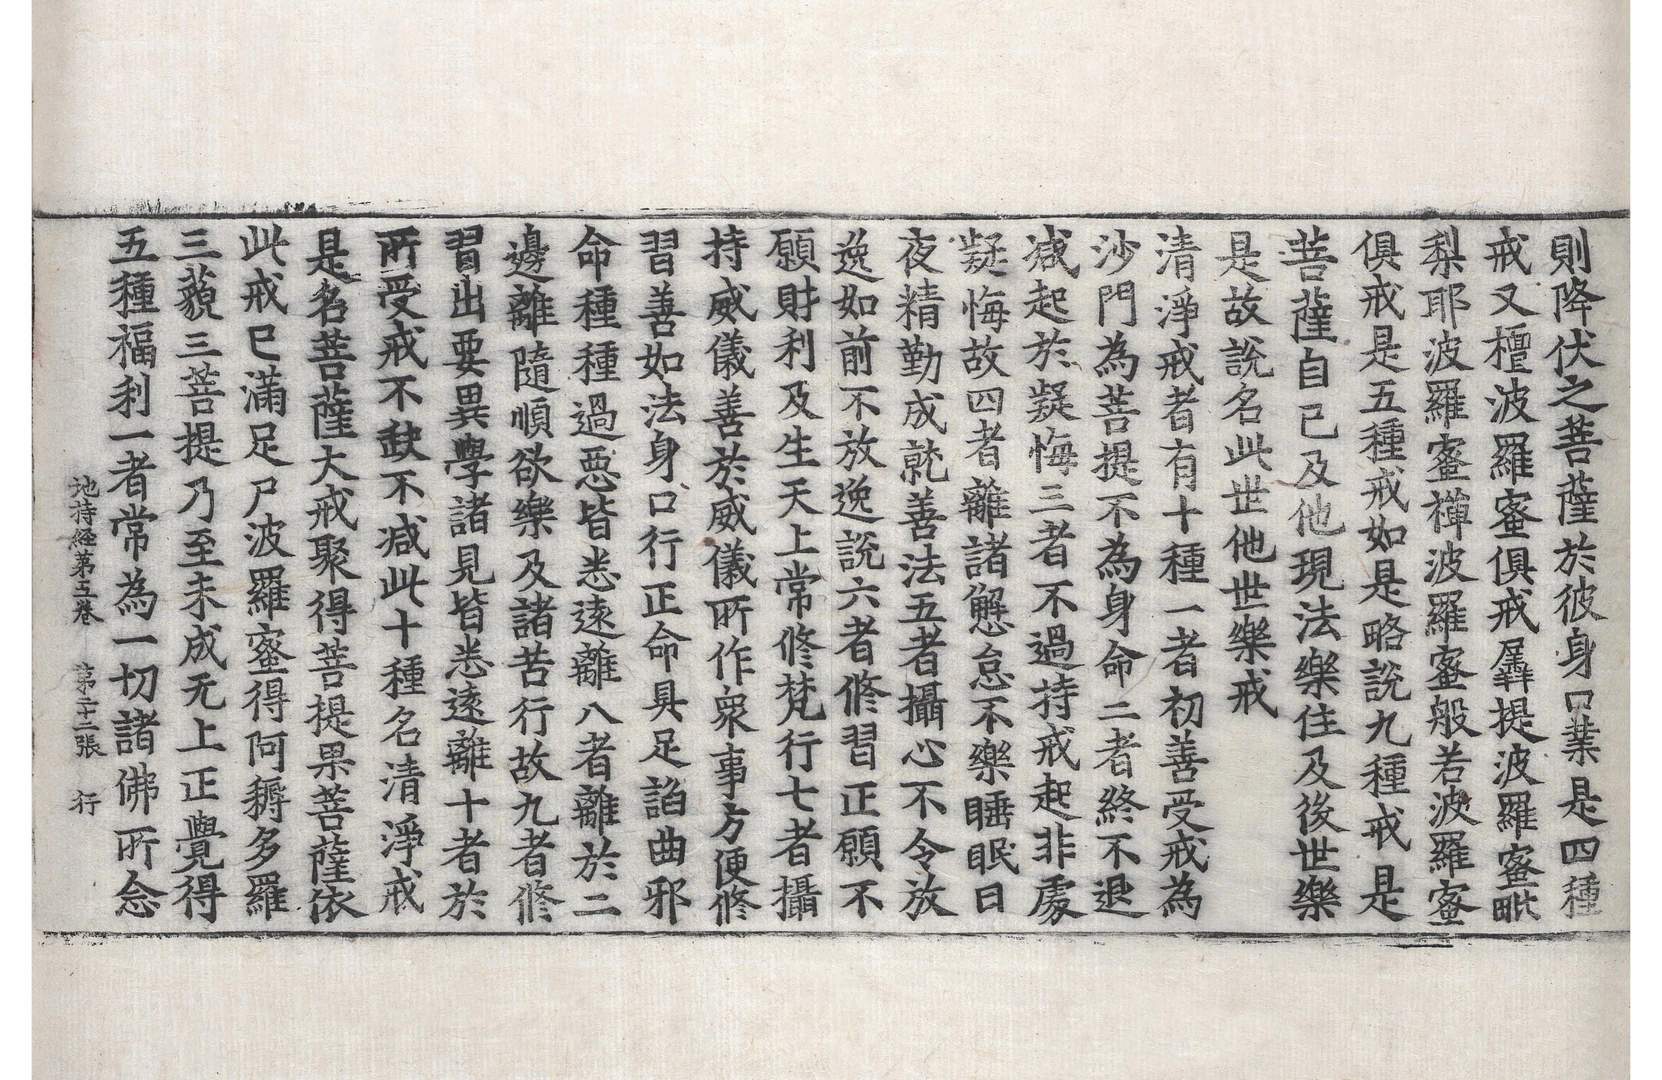 則降伏之菩薩於彼身口業是四種
戒又檀波羅蜜俱戒羼提波羅蜜毗
梨耶波羅蜜禪波羅蜜般若波羅蜜
俱戒是五種戒如是略說九種戒是
菩薩自己及他現法樂住及後世樂
是故說名此世他世樂戒
清淨戒者有十種一者初善受戒為
沙門為菩提不為身命二者終不退
減起於疑悔三者不過持戒起非處
疑悔故四者離諸懈怠不樂睡眠日
夜精勤成就善法五者攝心不令放
逸如前不放逸說六者修習正願不
願財利及生天上常修梵行七者攝
持威儀善於威儀所作衆事方便修
習善如法身口行正命具足諂曲邪
命種種過惡皆悉遠離八者離於二
邊離隨順欲樂及諸苦行故九者修
習出要異學諸見皆悉遠離十者於
所受戒不缺不減此十種名清淨戒
是名菩薩大戒聚得菩提果菩薩依
此戒已滿足尸波羅蜜得阿耨多羅
三藐三菩提乃至未成无上正覺得
五種福利一者常為一切諸佛所念
地持経第五卷 第二十二張 行